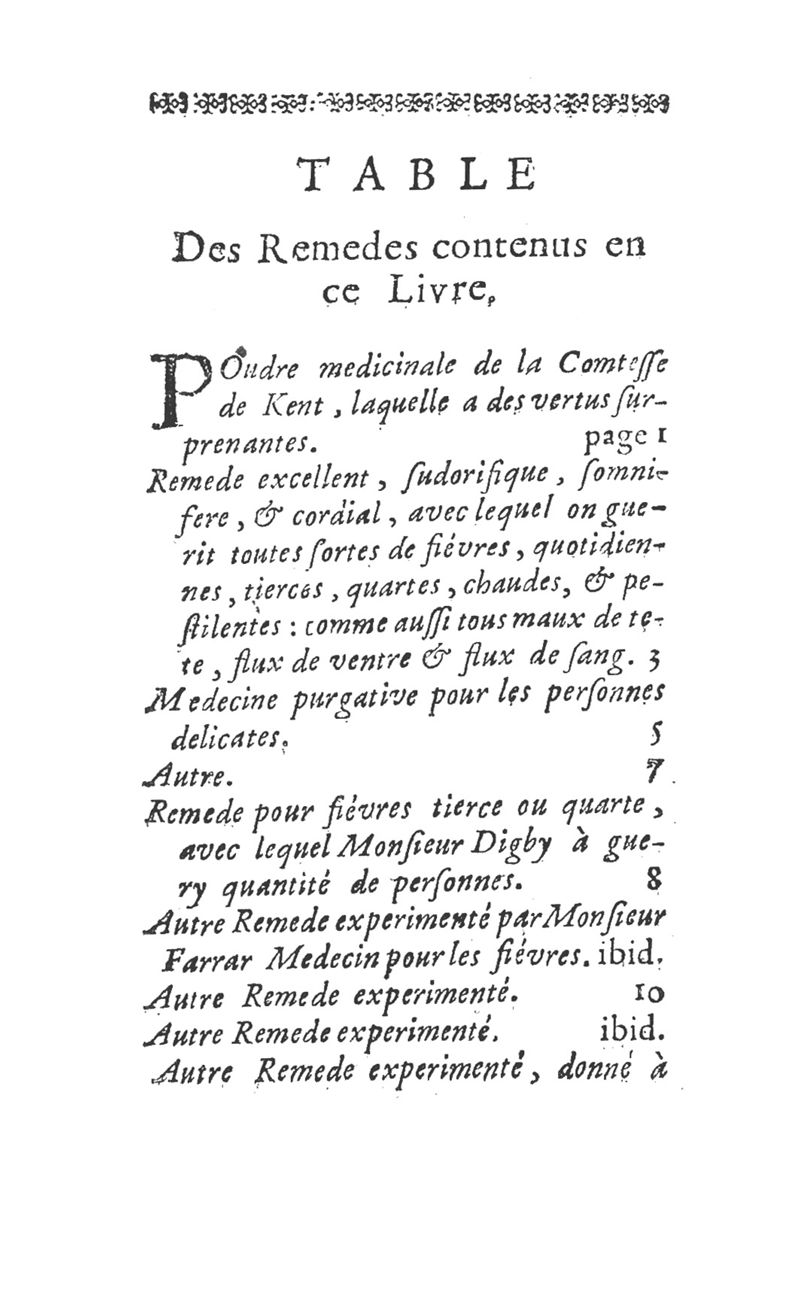 TABLE
Des Remedes contenus en
ce Livre.
POudre medicinale de la Comteſſe
de Kent, laquelle a des vertus ſur-
prenantes. page 1
Remede excellent, ſudorifique, ſomni-
fere, & cordial, avec lequel on gue-
rit toutes ſortes de fiévres, quotidien-
nes, tierces, quartes, chaudes, & pe-
ſtilentes : comme auſſi tous maux de te-
te, flux de ventre & flux de ſang. 3
Medecine purgative pour les perſonnes
delicates. 5
Autre. 7
Remede pour fiévres tierce ou quarte,
avec lequel Monſieur Digby à gue-
ry quantité de perſonnes. 8
Autre Remede experimenté par Monſieur
Farrar Medecin pour les fiévres. ibid.
Autre Remede experimenté. 10
Autre Remede experimenté. ibid.
Autre Remede experimenté, donné à